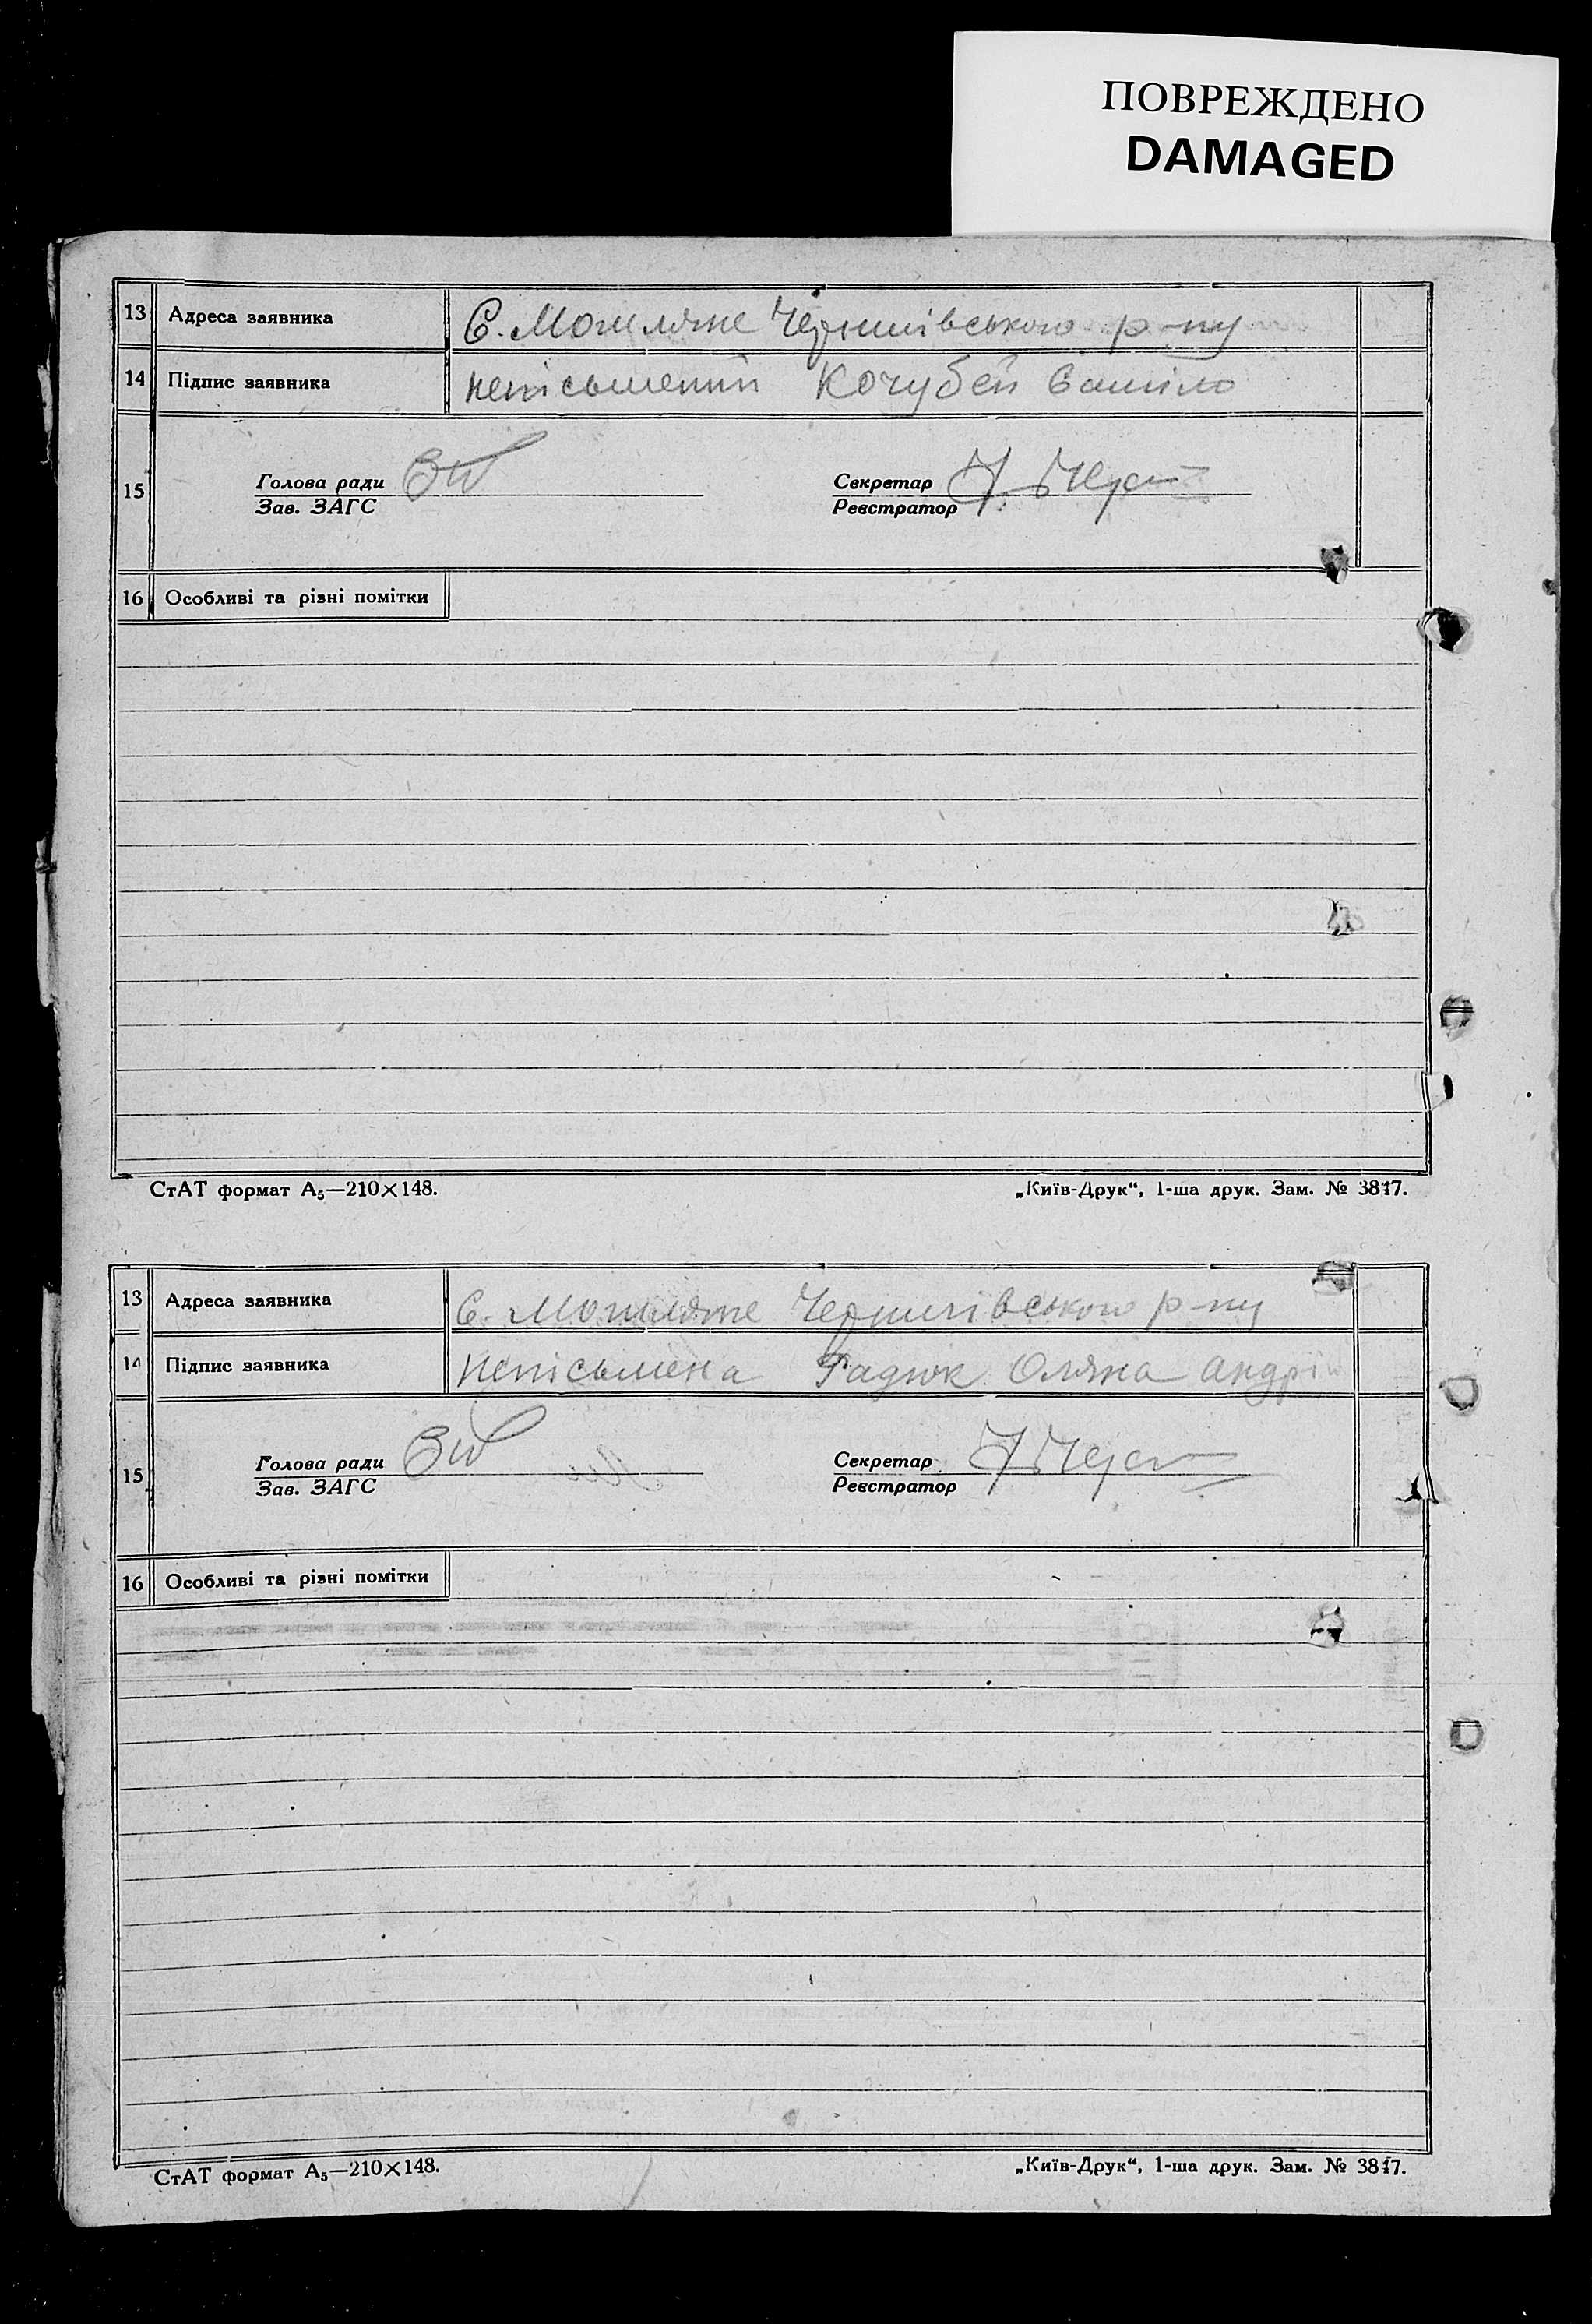 ПОВРЕЖДЕНО
DAMAGED
13 Адреса заявника С. Могиляне Чернигівського р-ну
14 Підпис заявника неписьмений Кочубей
15 Голова ради Секретар
Зав. ЗАГС Реєстратор
16 Особливі та різні помітки
СтАТ формат А₅—210×148. „Київ-Друк“, 1-ша друк. Зам. № 3817.
13 Адреса заявника С. Могиляне Чернигівського р-ну
14 Підпис заявника неписьмена Радюк Оляна Андрій
15 Голова ради Секретар
Зав. ЗАГС Реєстратор
16 Особливі та різні помітки
СтАТ формат А₅—210×148. „Київ-Друк“, 1-ша друк. Зам. № 3817.